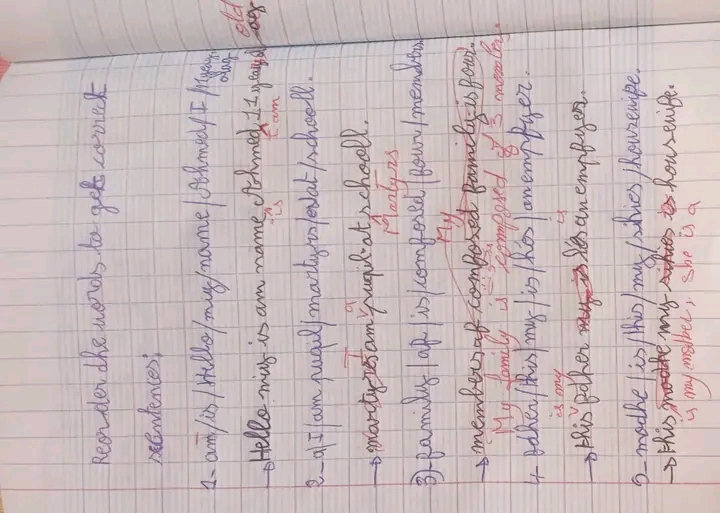 Reorder the words to get correct
sentences:
1- am/is/Hello/my/name/Ahmed/I/11 years
old
→ Hello my is am name Ahmed 11 years old
is
I am
2- a/I/am pupil/martyrs/at/schooll.
→ martyrs am pupil at schooll.
I a Martyrs
3) family/of/is/composed/four/members
My
→ members of composed family is four.
My family is composed of 3 member.
4- father/this/my/is/his/an employer.
is my
→ this father is an employer.
5- mothe/is/this/my/shies/housewife.
→ this my housewife.
is my mother, she is a